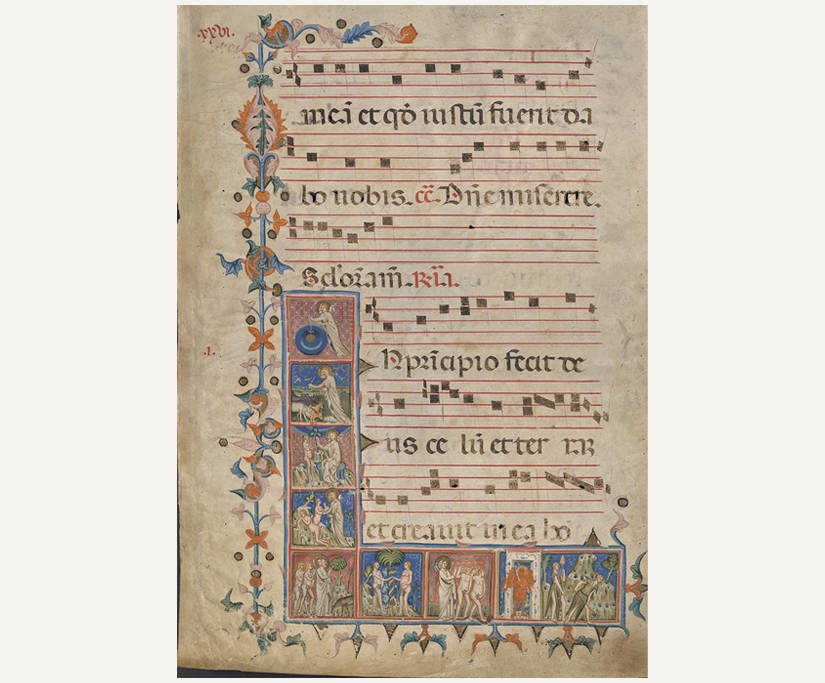 xxvi.
meā et qd̄ iustū fuerit da
bo uobis. cc̄. Dn̄e miserere.
Sc̄lor̄ am̄. R̄ īa.
.I.
N prīcipio fecit de
us ce lū et ter
et creauit in ea ho